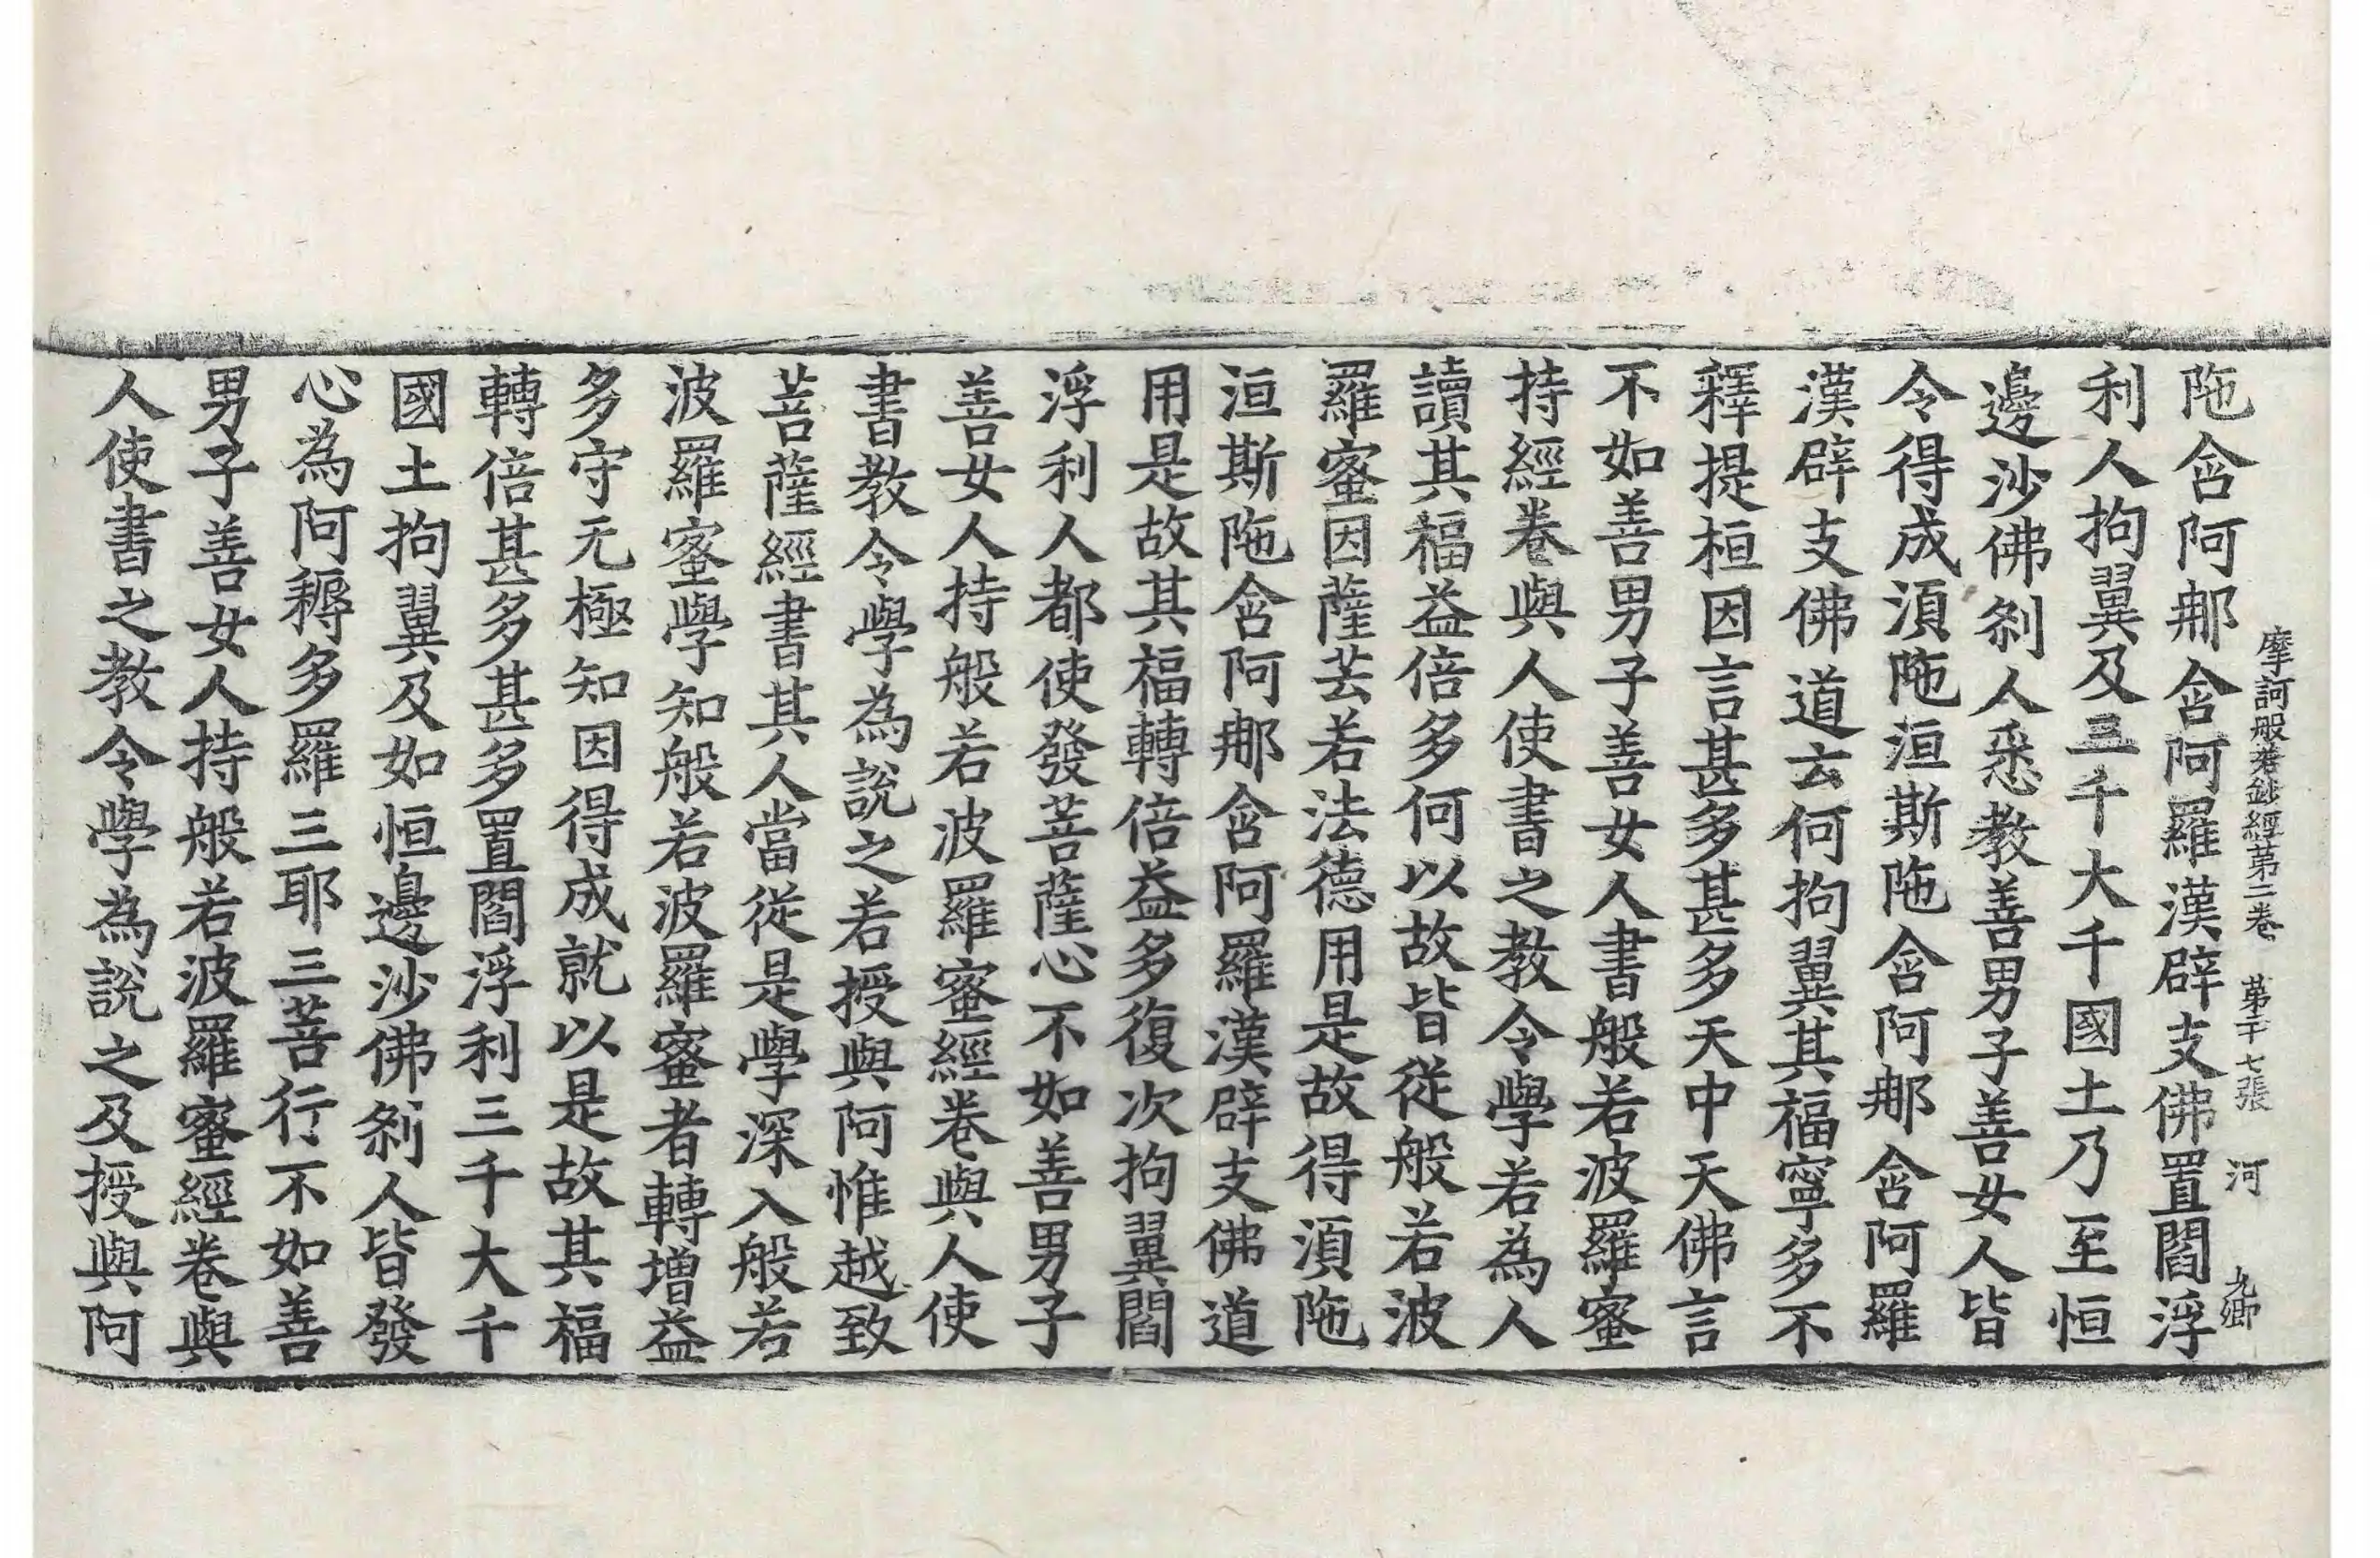 摩訶般若鈔經第二卷 第二十七張 河 九卿
陁含阿那含阿羅漢辟支佛置閻浮
利人拘翼及三千大千國土乃至恒
邊沙佛刹人悉教善男子善女人皆
令得成湏陁洹斯陁含阿那含阿羅
漢辟支佛道云何拘翼其福寧多不
釋提桓因言甚多甚多天中天佛言
不如善男子善女人書般若波羅蜜
持經卷與人使書之教令學若為人
讀其福益倍多何以故皆從般若波
羅蜜因薩芸若法德用是故得湏陁
洹斯陁含阿那含阿羅漢辟支佛道
用是故其福轉倍益多復次拘翼閻
浮利人都使發菩薩心不如善男子
善女人持般若波羅蜜經卷與人使
書教令學為說之若授與阿惟越致
菩薩經書其人當從是學深入般若
波羅蜜學知般若波羅蜜者轉增益
多守无極知因得成就以是故其福
轉倍甚多甚多置閻浮利三千大千
國土拘翼及如恒邊沙佛刹人皆發
心為阿耨多羅三耶三菩行不如善
男子善女人持般若波羅蜜經卷與
人使書之教令學為說之及授與阿